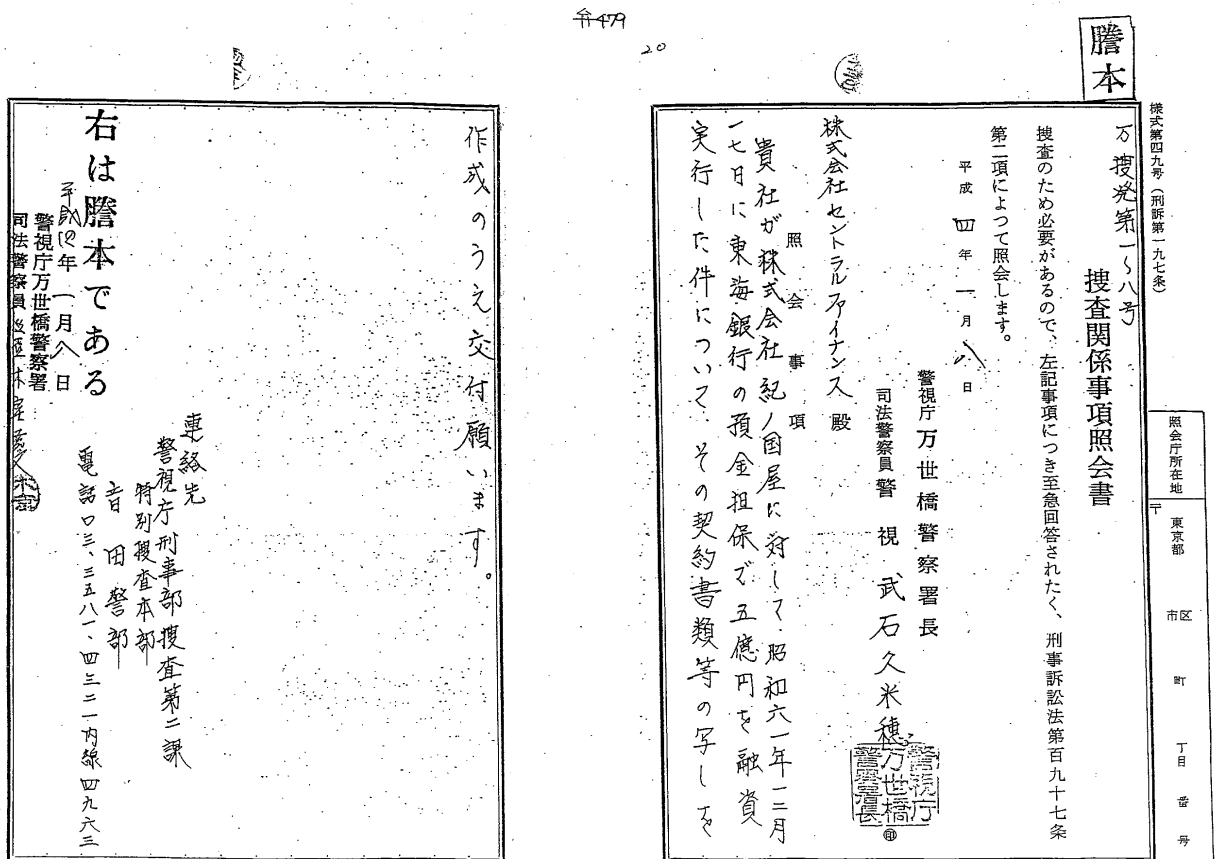 弁479
20
謄本
様式第四九号(刑訴第一九七条)
照会庁所在地
〒 東京都 市区 町 丁目 番 号
万捜発第一〜八号
捜査関係事項照会書
捜査のため必要があるので、左記事項につき至急回答されたく、刑事訴訟法第百九十七条
第二項によつて照会します。
平成四年一月八日
警視庁万世橋警察署長
司法警察員警視 武石久米穂
警視庁万世橋警察署長
印
株式会社セントラルファイナンス殿
照会事項
貴社が株式会社紀ノ国屋に対して、昭和六一年一二月
一七日に東海銀行の預金担保で五億円を融資
実行した件について、その契約書類等の写しを
作成のうえ交付願います。
連絡先
警視庁刑事部捜査第二課
特別捜査本部
音田警部
電話〇三、三五八一、四三二一内線四九六三
右は謄本である
平成四年一月八日
警視庁万世橋警察署
司法警察員